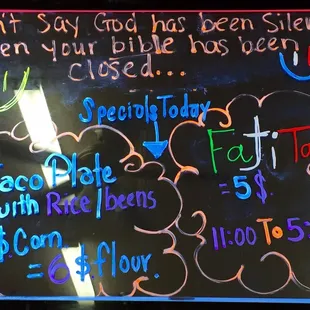 't Say God has been Silen
en your bible has been
closed...
Specials Today
aco Plate
with Rice/beens
$.Corn
= 6 $ flour.
Fajti Ta
= 5$.
11:00 To 5: